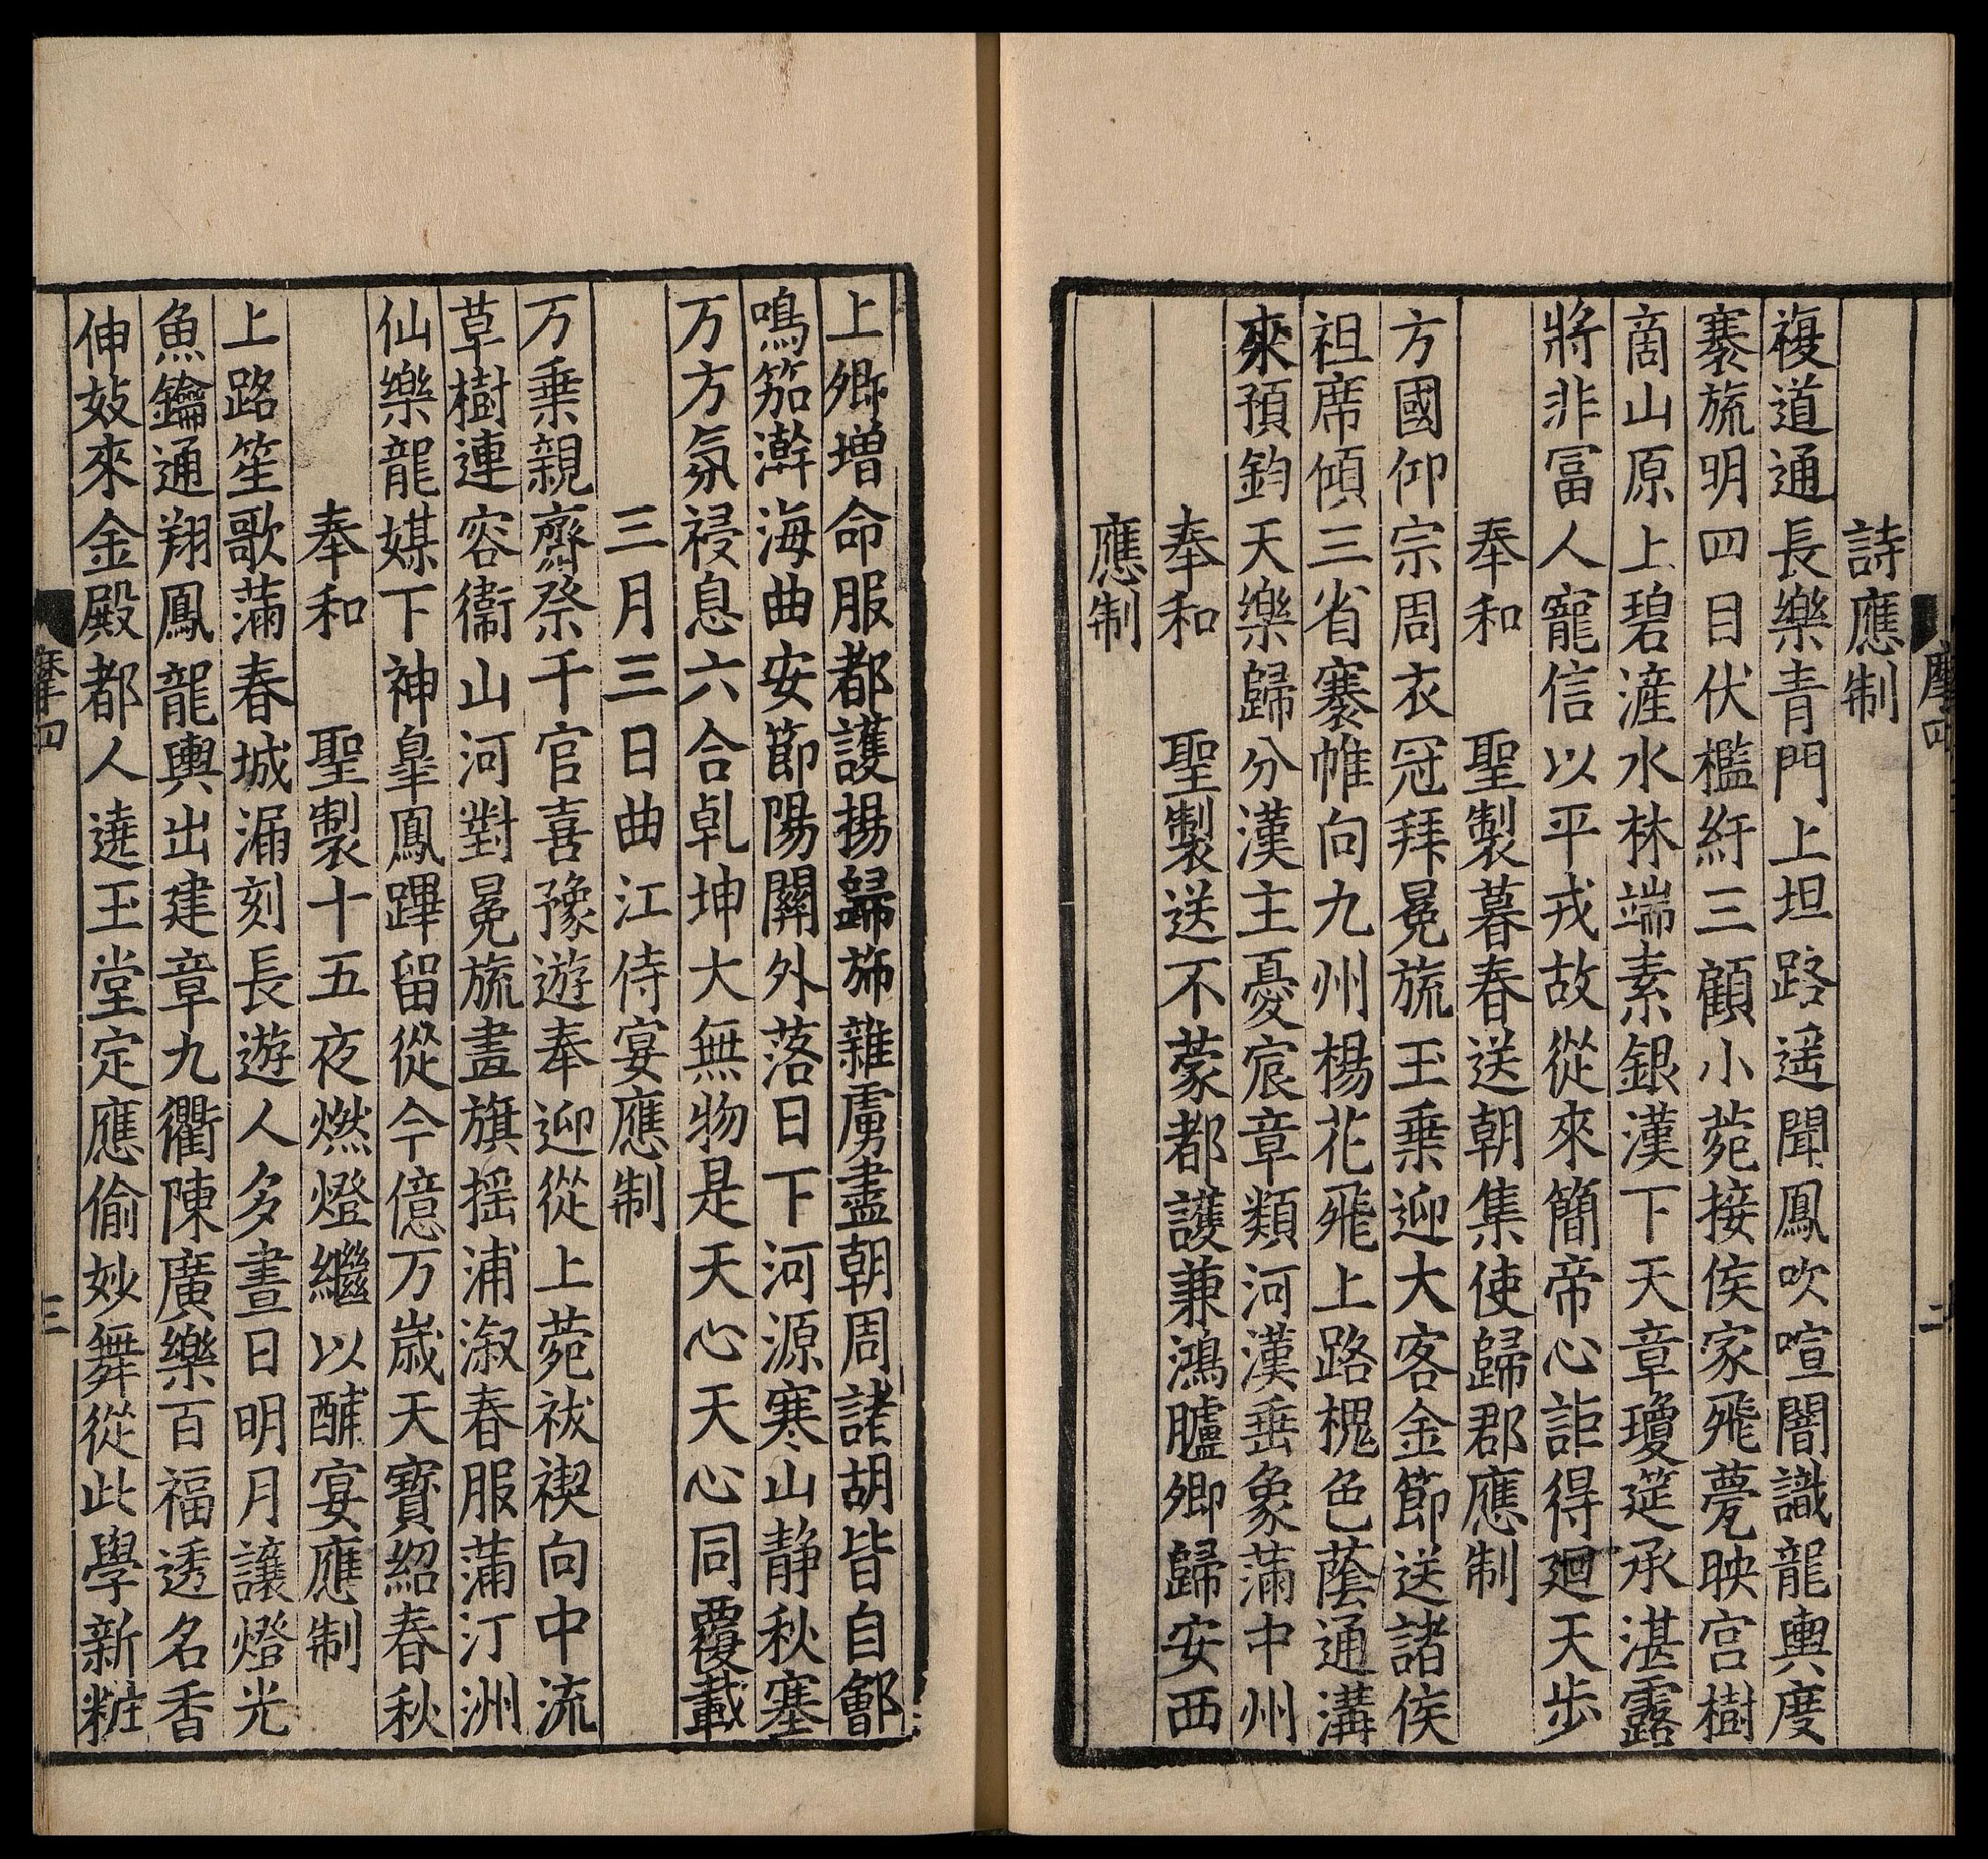 詩應制
複道通長樂青門上坦路遥聞鳳吹喧闇識龍輿度
褰旒明四目伏檻紆三顧小菀接侯家飛甍映宫樹
商山原上碧滻水林端素銀漢下天章瓊筵承湛露
將非冨人寵信以平戎故從來簡帝心詎得廻天步
奉和　聖製暮春送朝集使歸郡應制
方國仰宗周衣冠拜冕旒玉乗迎大客金節送諸侯
祖席傾三省褰帷向九州楊花飛上路槐色蔭通溝
來預鈞天樂歸分漢主憂宸章類河漢垂象滿中州
奉和　聖製送不蒙都護兼鴻臚卿歸安西
應制
上卿增命服都護揚歸旆雜虜盡朝周諸胡皆自鄶
鳴笳瀚海曲安節陽關外落日下河源寒山静秋塞
万方氛祲息六合乹坤大無物是天心天心同覆載
三月三日曲江侍宴應制
万乗親齋祭千官喜豫遊奉迎從上菀祓禊向中流
草樹連容衞山河對冕旒畫旗揺浦溆春服滿汀洲
仙樂龍媒下神臯鳳蹕留從今億万歳天寳紹春秋
奉和　聖製十五夜燃燈繼以酺宴應制
上路笙歌滿春城漏刻長遊人多晝日明月讓燈光
魚鑰通翔鳳龍輿出建章九衢陳廣樂百福透名香
伸妓來金殿都人遶玉堂定應偷妙舞從此學新粧
摩四
二
摩四
三